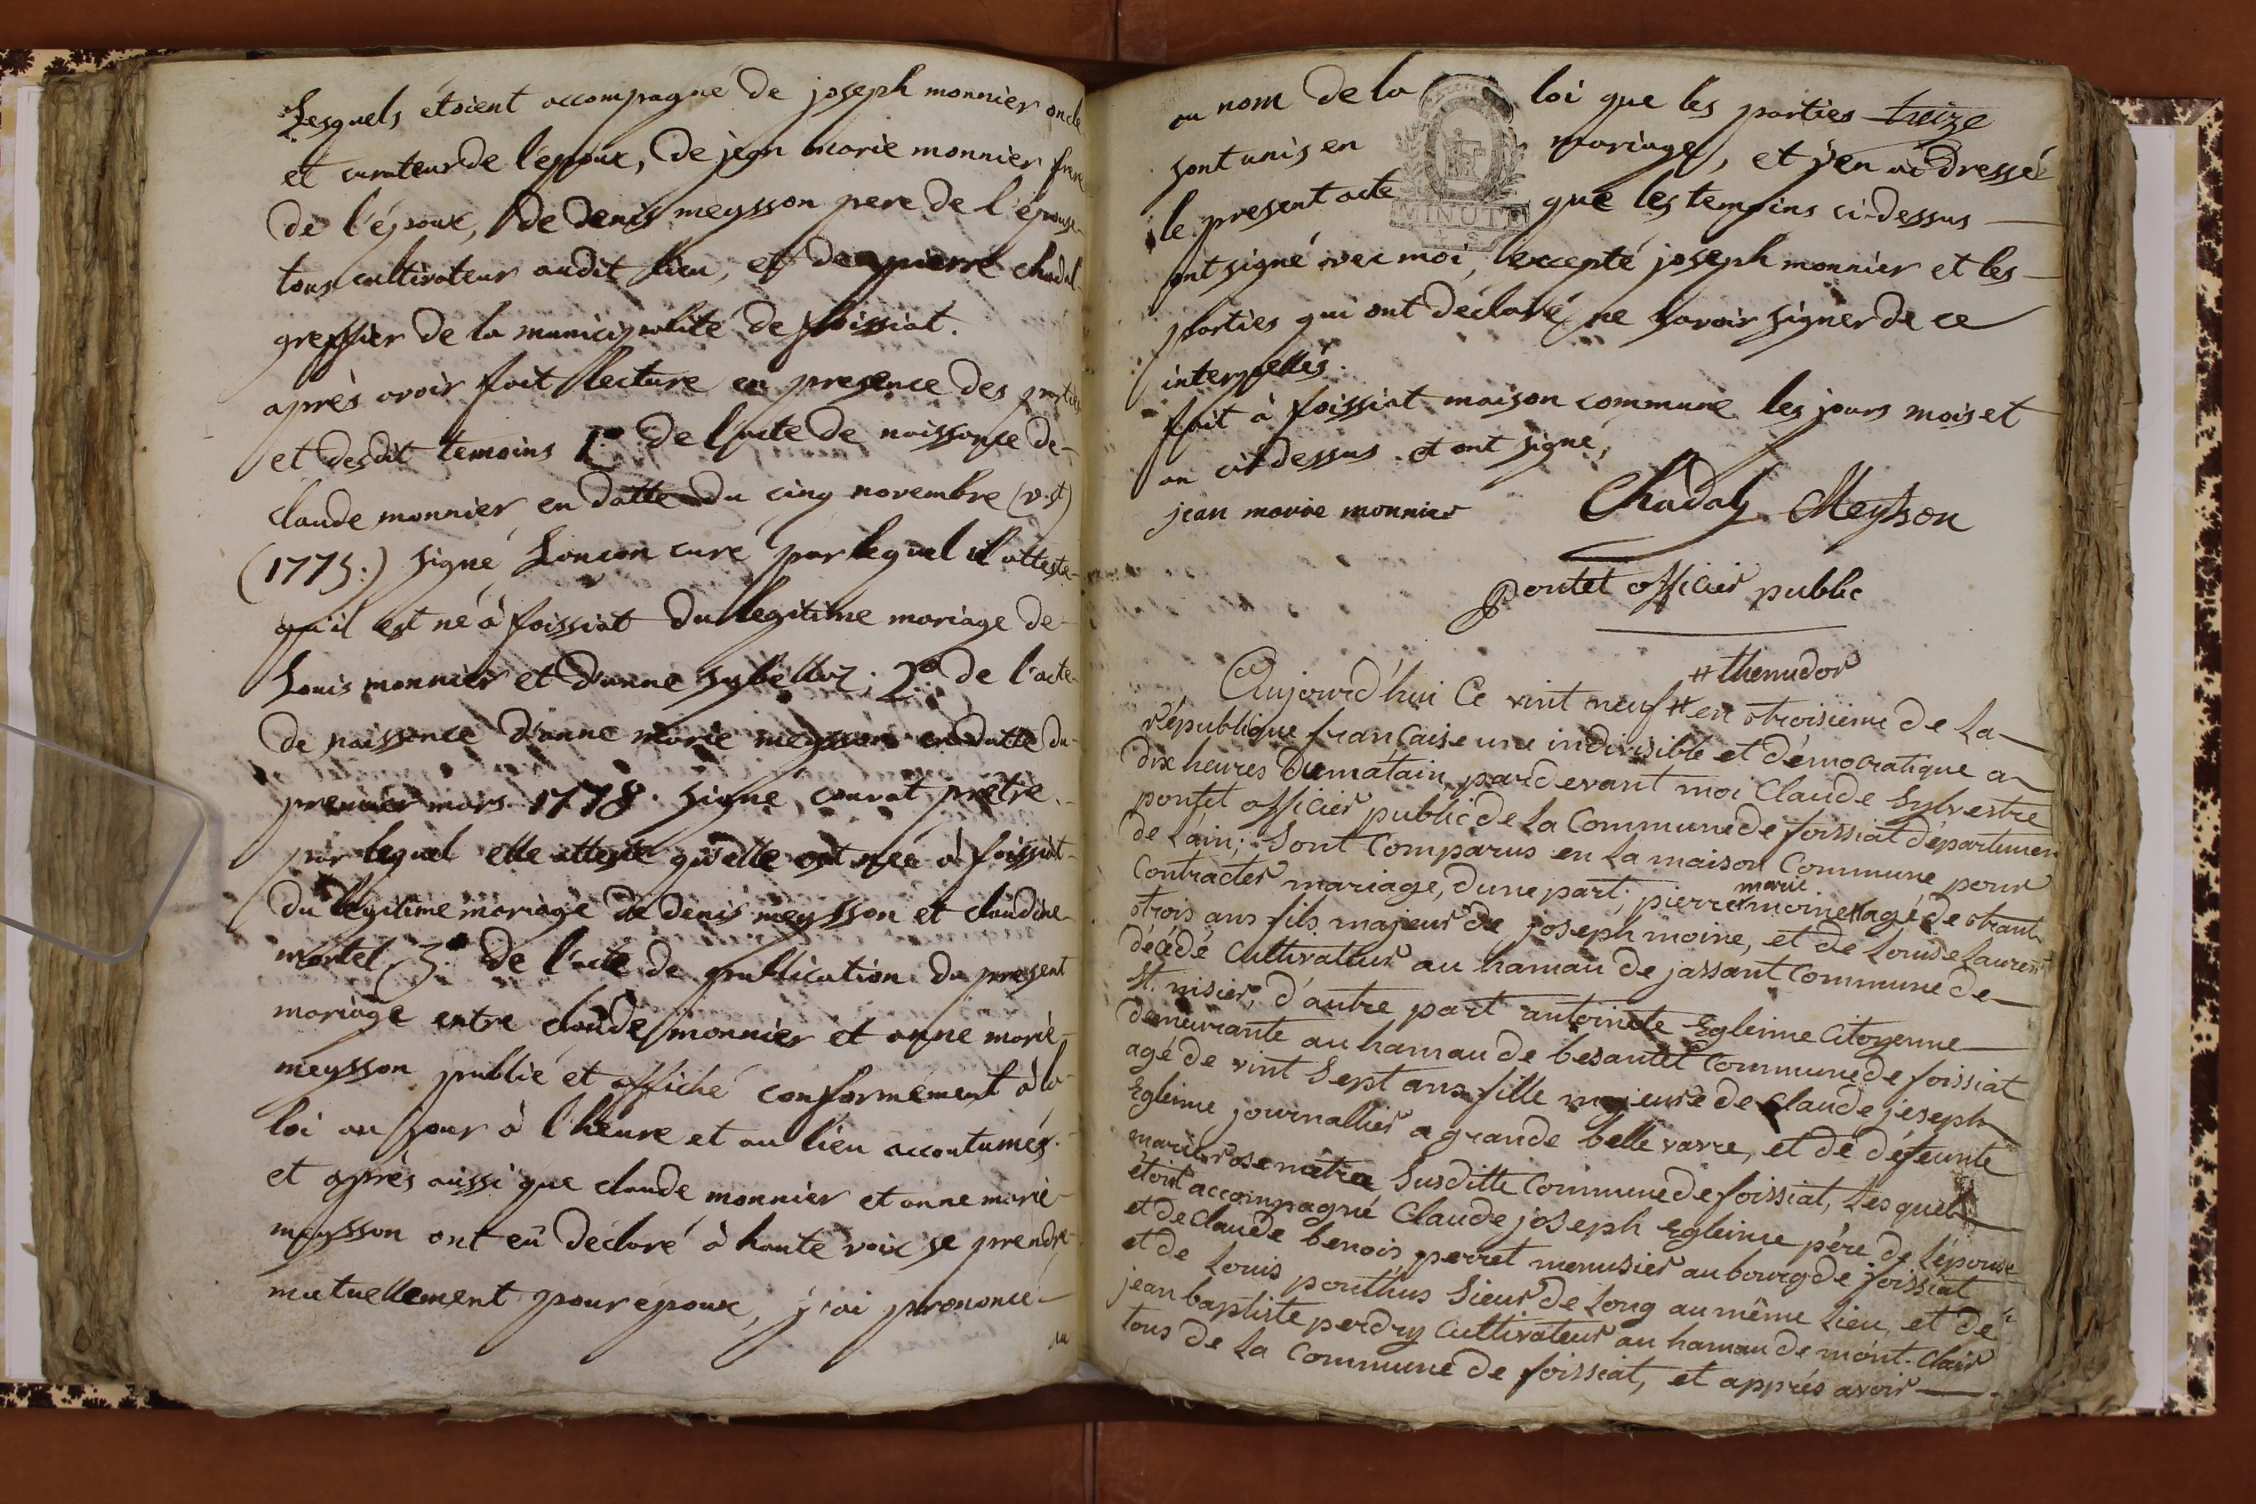 Lesquels étoient accompagné de joseph monnier oncle
et curateur de l'époux, de jean marie monnier frere
de l'époux, de denis meysson pere de l'épouse
tous cultivateur audit lieu, et de pierre chadal
greffier de la municipalité de foissiat.
après avoir fait lecture en presence des parties
et desdit temoins 1º de l'acte de naissance de
claude monnier en datte du cinq novembre (v.st)
(1775.) signé Loncon curé par lequel il atteste
qu'il est né à foissiat du legitime mariage de
Louis monnier et d'anne sybelloz; 2º de l'acte
de naissance d'anne marie meysson en datte du
premier mars 1778. signé couvat prêtre
par lequel elle atteste qu'elle est née à foissiat
du legitime mariage de denis meysson et claudine
martel 3º de l'acte de publication du present
mariage entre claude monnier et anne marie
meysson publié et affiché conformément à la
loi au jour à l'heure et au lieu accoutumés.
et après aussi que claude monnier et anne marie
meysson ont eû declaré à haute voix se prendre
mutuellement pour époux, j'ai prononcé
au
au nom de la loi que les parties treize
sont unis en mariage, et j'en ai dressé
le present acte que les temoins ci-dessus
MINUTE
ont signé avec moi, excepté joseph monnier et les
parties qui ont déclaré ne savoir signer de ce
interpellés.
fait à foissiat maison commune les jours mois et
an ci dessus et ont signé,
jean marie monnier Chadal Meysson
pontet officier public
# thermidor
Aujourd'hui Ce vint neuf # en otroisième de La
république française une indivisible et démocratique a
dix heures du matain, pardevant moi Claude Sylvestre
pontet officier public de La Commune de foissiat départemen
de Lain; Sont Comparus en La maison Commune pour
Contracter mariage, dune part; pierre moine agé de otrante
marie
otrois ans fils majeur de joseph moine, et de Louise Laurent
décédé Cultivateur au hamau de jassant Commune de
St. nisier, d'autre part antoinete Egleinne Citoyenne
demeurante au hamau de besantet Commune de foissiat
agé de vint Sept ans fille majeure de Claude jeseph
Egleinne journallier a grande belle varre, et de défeunte
marie rose Susditte Commune de foissiat, Lesquels
étoint accompagné Claude joseph Egleinne père de Lépouse
et de Claude benois perret menusier au bourg de foissiat
et de Louis pouthus Sieur de Long au même Lieu, et de
jean baptiste perdry Cultivateur au hamau de mont-Clair
tous de La Commune de foissiat, et apprés avoir